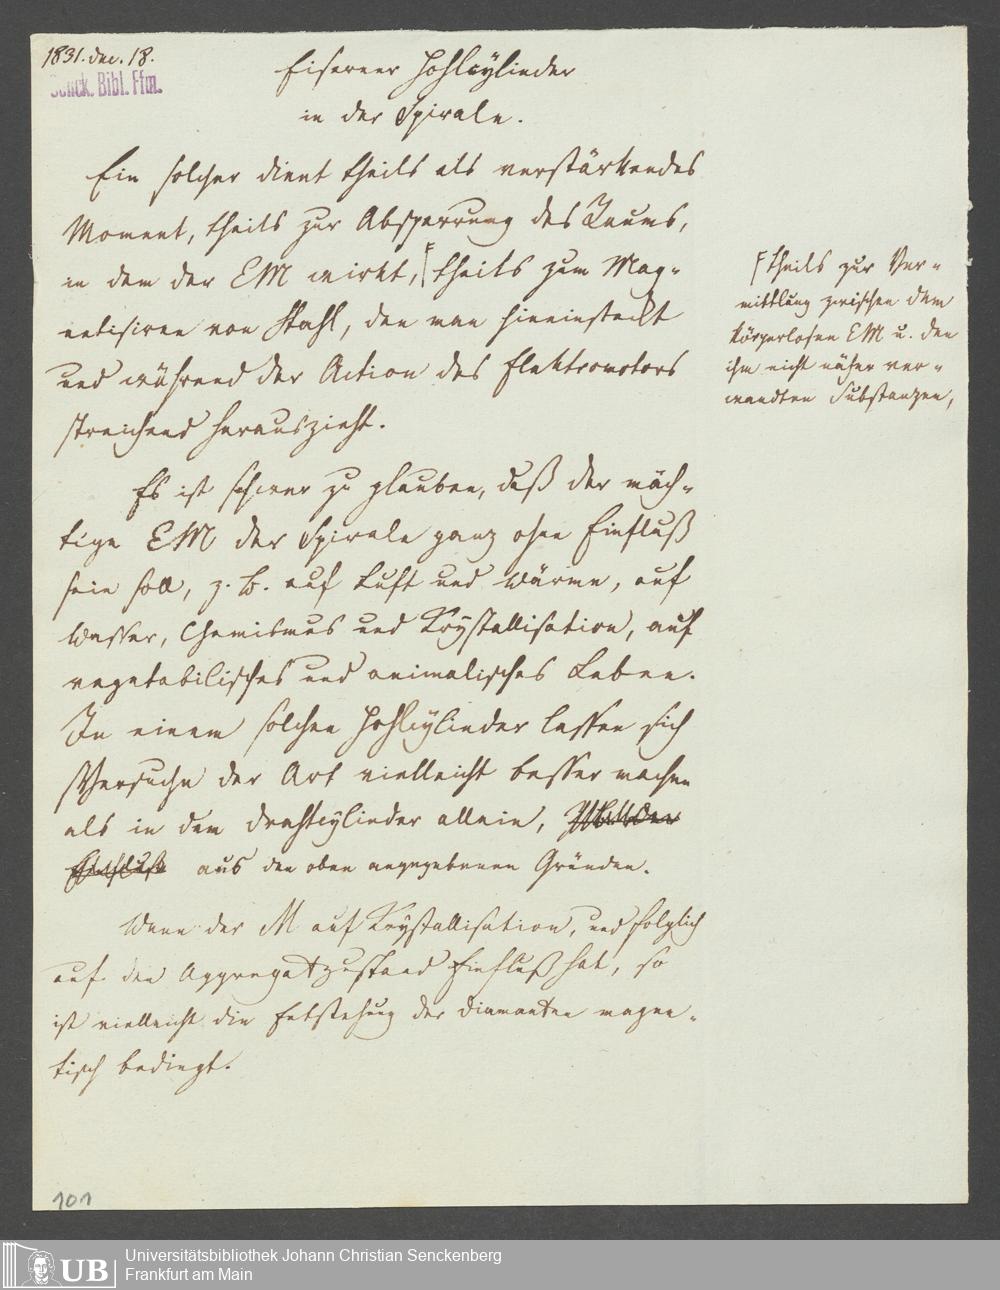 1831. dec. 18.
Senck. Bibl. Ffm.
Eiserner Hohlcylinder
in der Spirale.
Ein solcher dient theils als verstärkendes
Moment, theils zur Absperrung des Raums,
in dem der EM wirkt, theils zum Mag-
netisiren von Stahl, den man hineinsteckt
und während der Action des Elektromotors
streichend herauszieht.
theils zur Ver-
mittlung zwischen dem
körperlosen EM u. den
ihm nicht näher ver-
wandten Substanzen,
Es ist schwer zu glauben, daß der mäch-
tige EM der Spirale ganz ohne Einfluß
sein soll, z. B. auf Luft und Wärme, auf
Wasser, Chemismus und Krystallisation, auf
vegetabilisches und animalisches Leben.
In einem solchen Hohlcylinder lassen sich
Versuche der Art vielleicht besser machen
als in dem Drahtcylinder allein,
aus den oben angegebenen Gründen.
Wenn der M auf Krystallisation, und folglich
auf den Aggregatzustand Einfluß hat, so
ist vielleicht die Entstehung der Diamanten magne-
tisch bedingt.
101
UB
Universitätsbibliothek Johann Christian Senckenberg
Frankfurt am Main